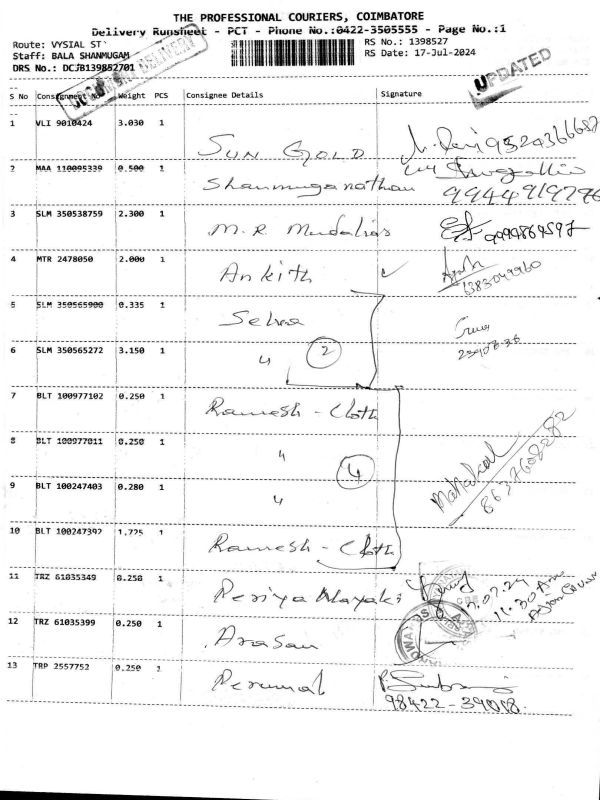 THE PROFESSIONAL COURIERS, COIMBATORE
Delivery Runsheet - PCT - Phone No.:0422-3505555 - Page No.:1
Route: VYSIAL ST
RS No.: 1398527
Staff: BALA SHANMUGAM
RS Date: 17-Jul-2024
DRS No.: DCJB139852701
UPDATED
S No Consignment No Weight PCS Consignee Details Signature
1 VLI 9010424 3.030 1 SUN GOLD
2 MAA 110095339 0.500 1 Shanmuganathan
3 SLM 350538759 2.300 1 M.R Mudaliar 9994869597
4 MTR 2478050 2.000 1 Ankith 6383049960
5 SLM 350565900 0.335 1 Selva
6 SLM 350565272 3.150 1 " 2
7 BLT 100977102 0.250 1 Ramesh - Cloth
8 BLT 100977011 0.250 1 "
9 BLT 100247403 0.280 1 " 4
Mahalal 8637608282
10 BLT 100247392 1.725 1 Ramesh - Cloth
11 TRZ 61035349 0.250 1 Periya Nayaki
11.30 Am
12 TRZ 61035399 0.250 1 Arasan
13 TRP 2557752 0.250 1 Perumal
98422-39018.